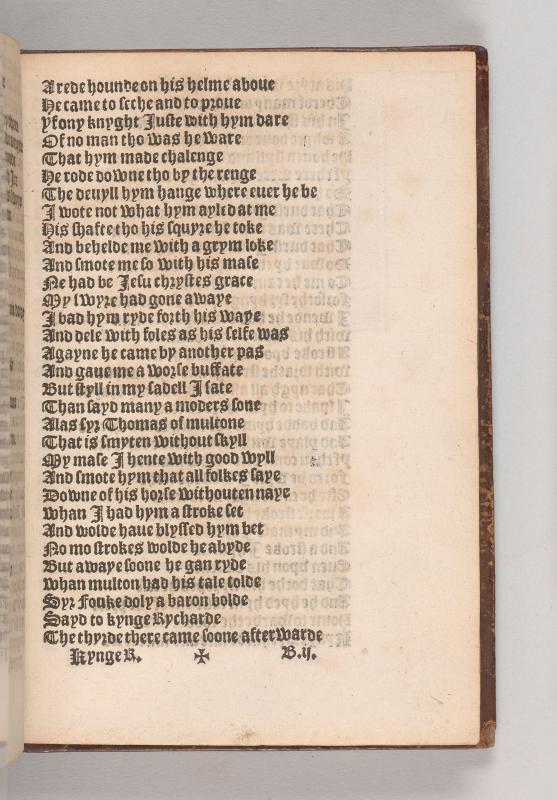 A rede hounde on his helme aboue
He came to seche and to proue
Yf ony knyght Juste with hym dare
Of no man tho was he ware
That hym made chalenge
He rode downe tho by the renge
The deuyll hym hange where euer he be
I wote not what hym ayled at me
His shafte tho his squyre he toke
And behelde me with a grym loke
And smote me so with his mase
Ne had be Jesu chrystes grace
My swyre had gone awaye
I bad hym ryde forth his waye
And dele with foles as his selfe was
Agayne he came by another pas
And gaue me a worse buffate
But styll in my sadell I sate
Than sayd many a moders sone
Alas syr Thomas of multone
That is smyten without skyll
My mase I hente with good wyll
And smote hym that all folkes saye
Downe of his horse withouten naye
whan I had hym a stroke set
And wolde haue blyssed hym bet
No mo strokes wolde he abyde
But awaye soone he gan ryde
whan multon had his tale tolde
Syr Fouke doly a baron bolde
Sayd to kynge Rycharde
The thyrde there came soone afterwarde
Kynge R. ✠ B.ij.